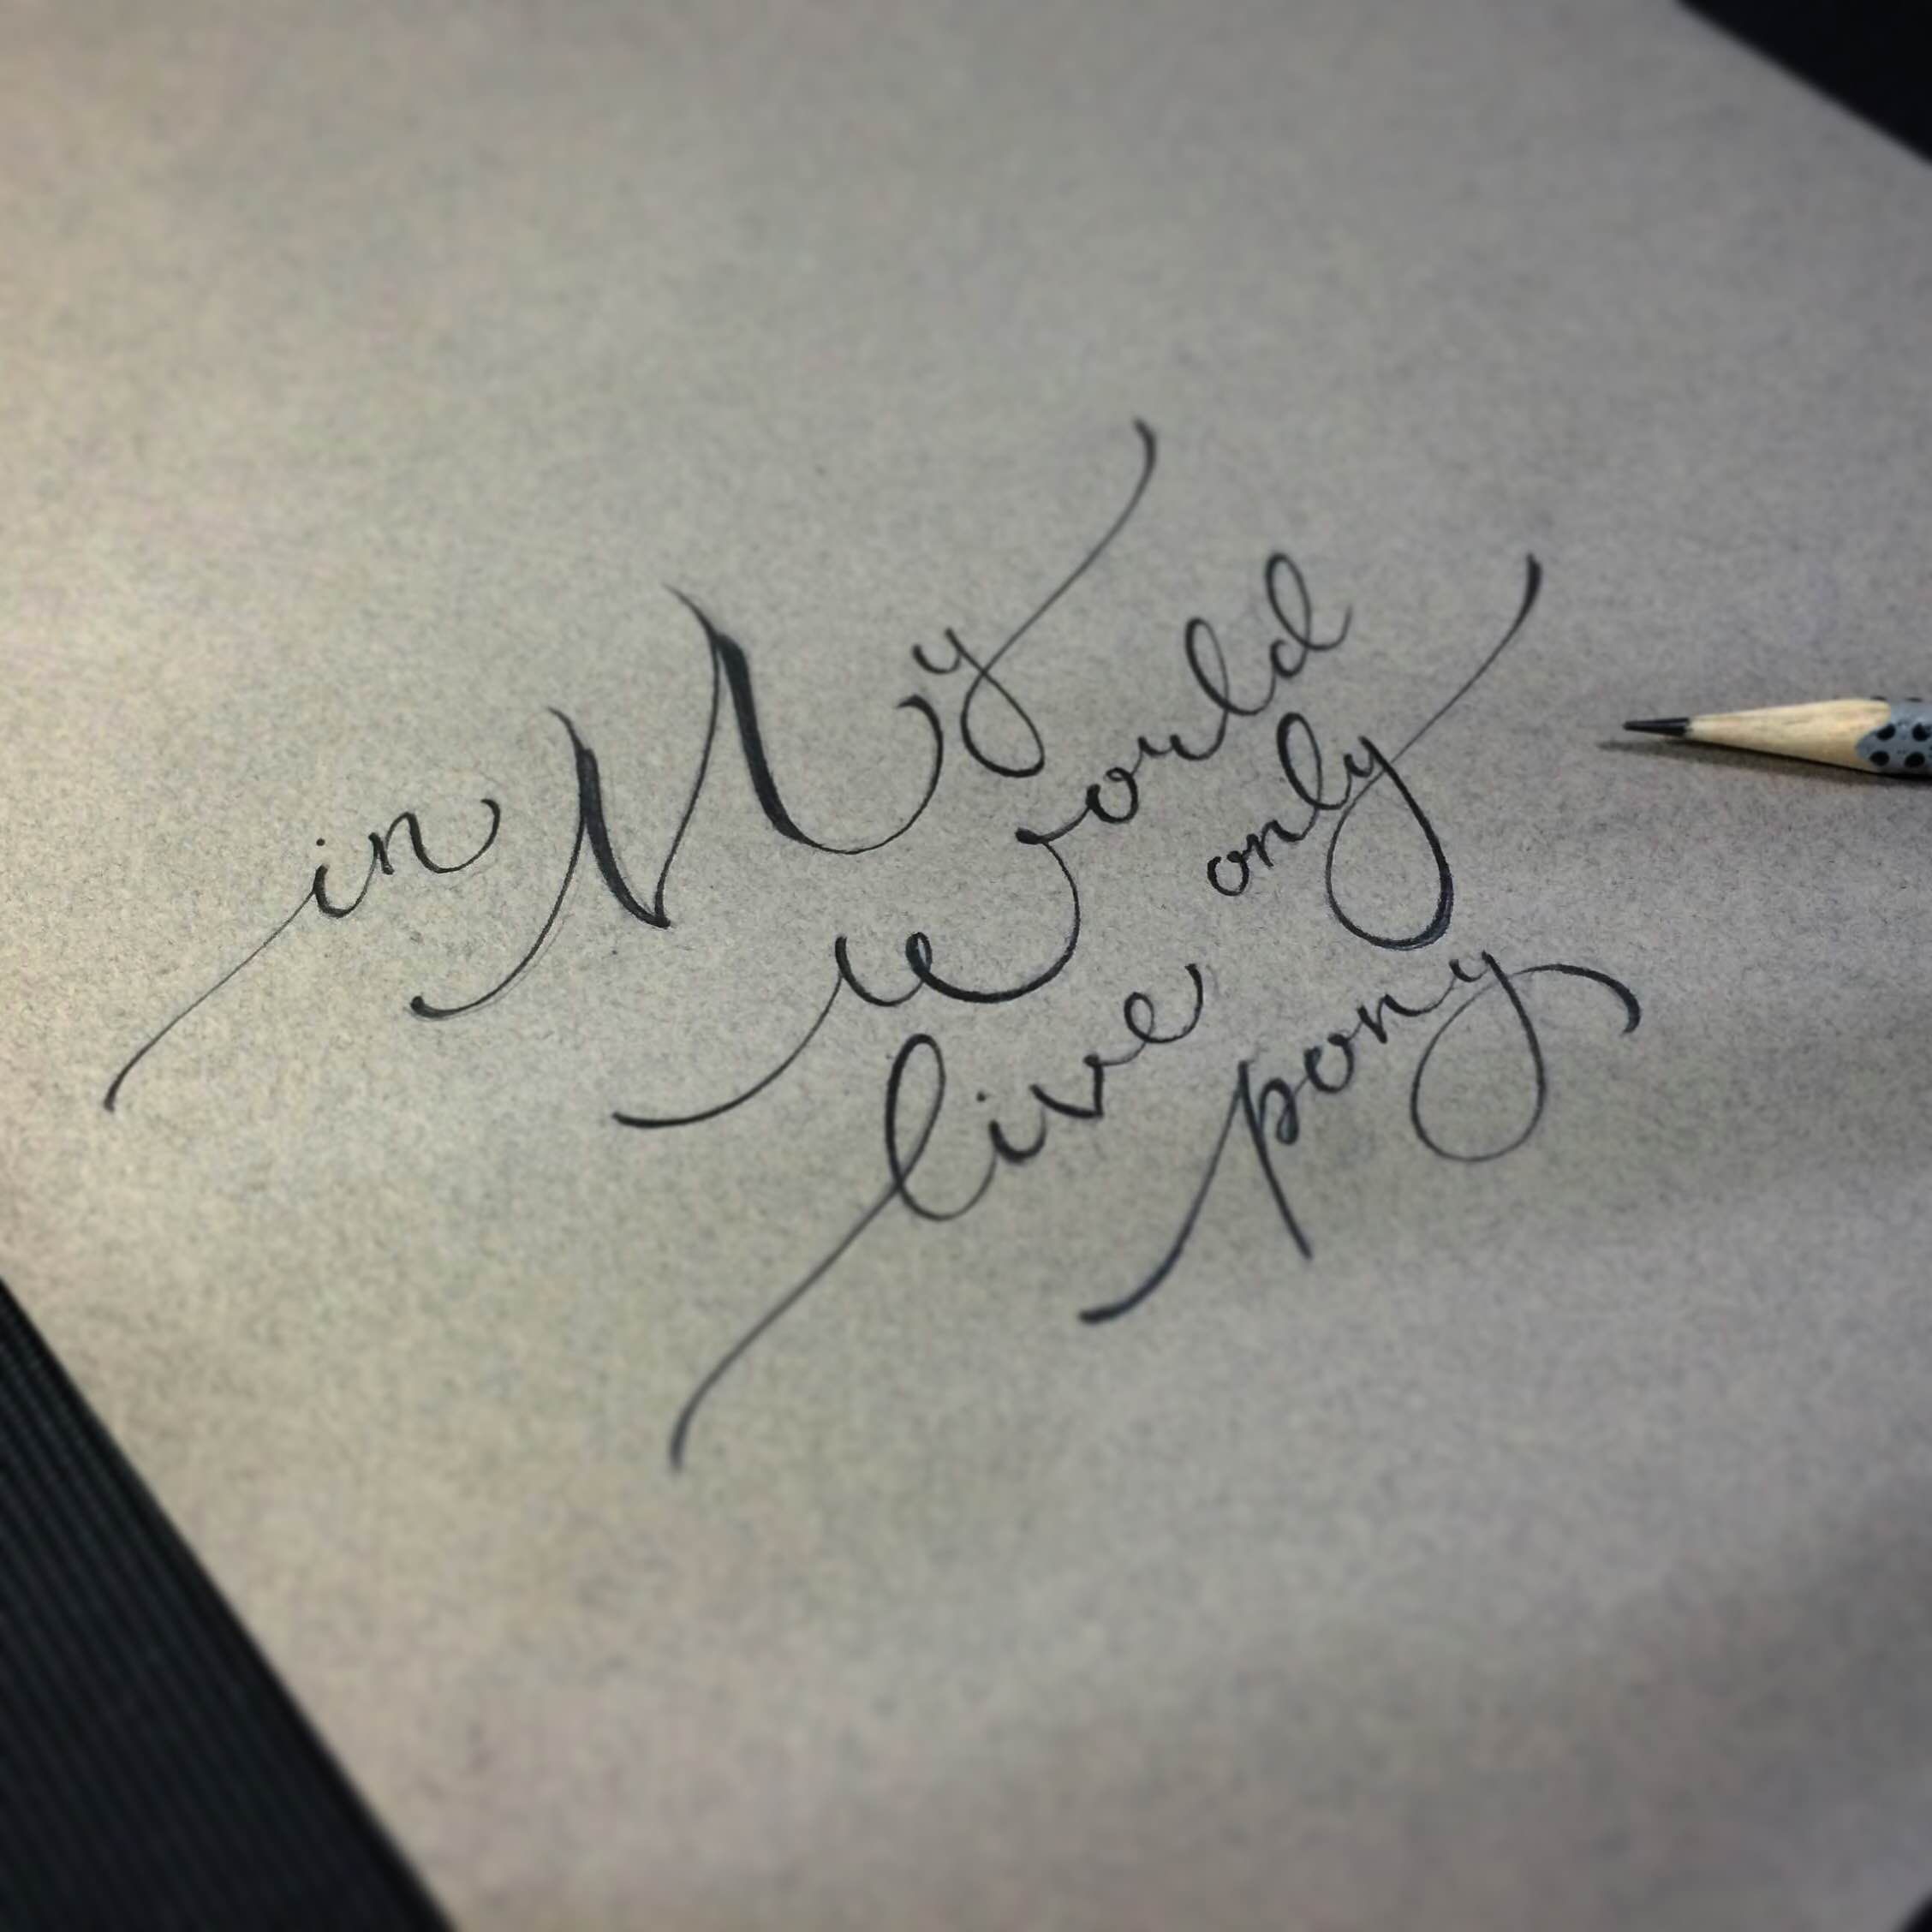 in My
world
live only
pony